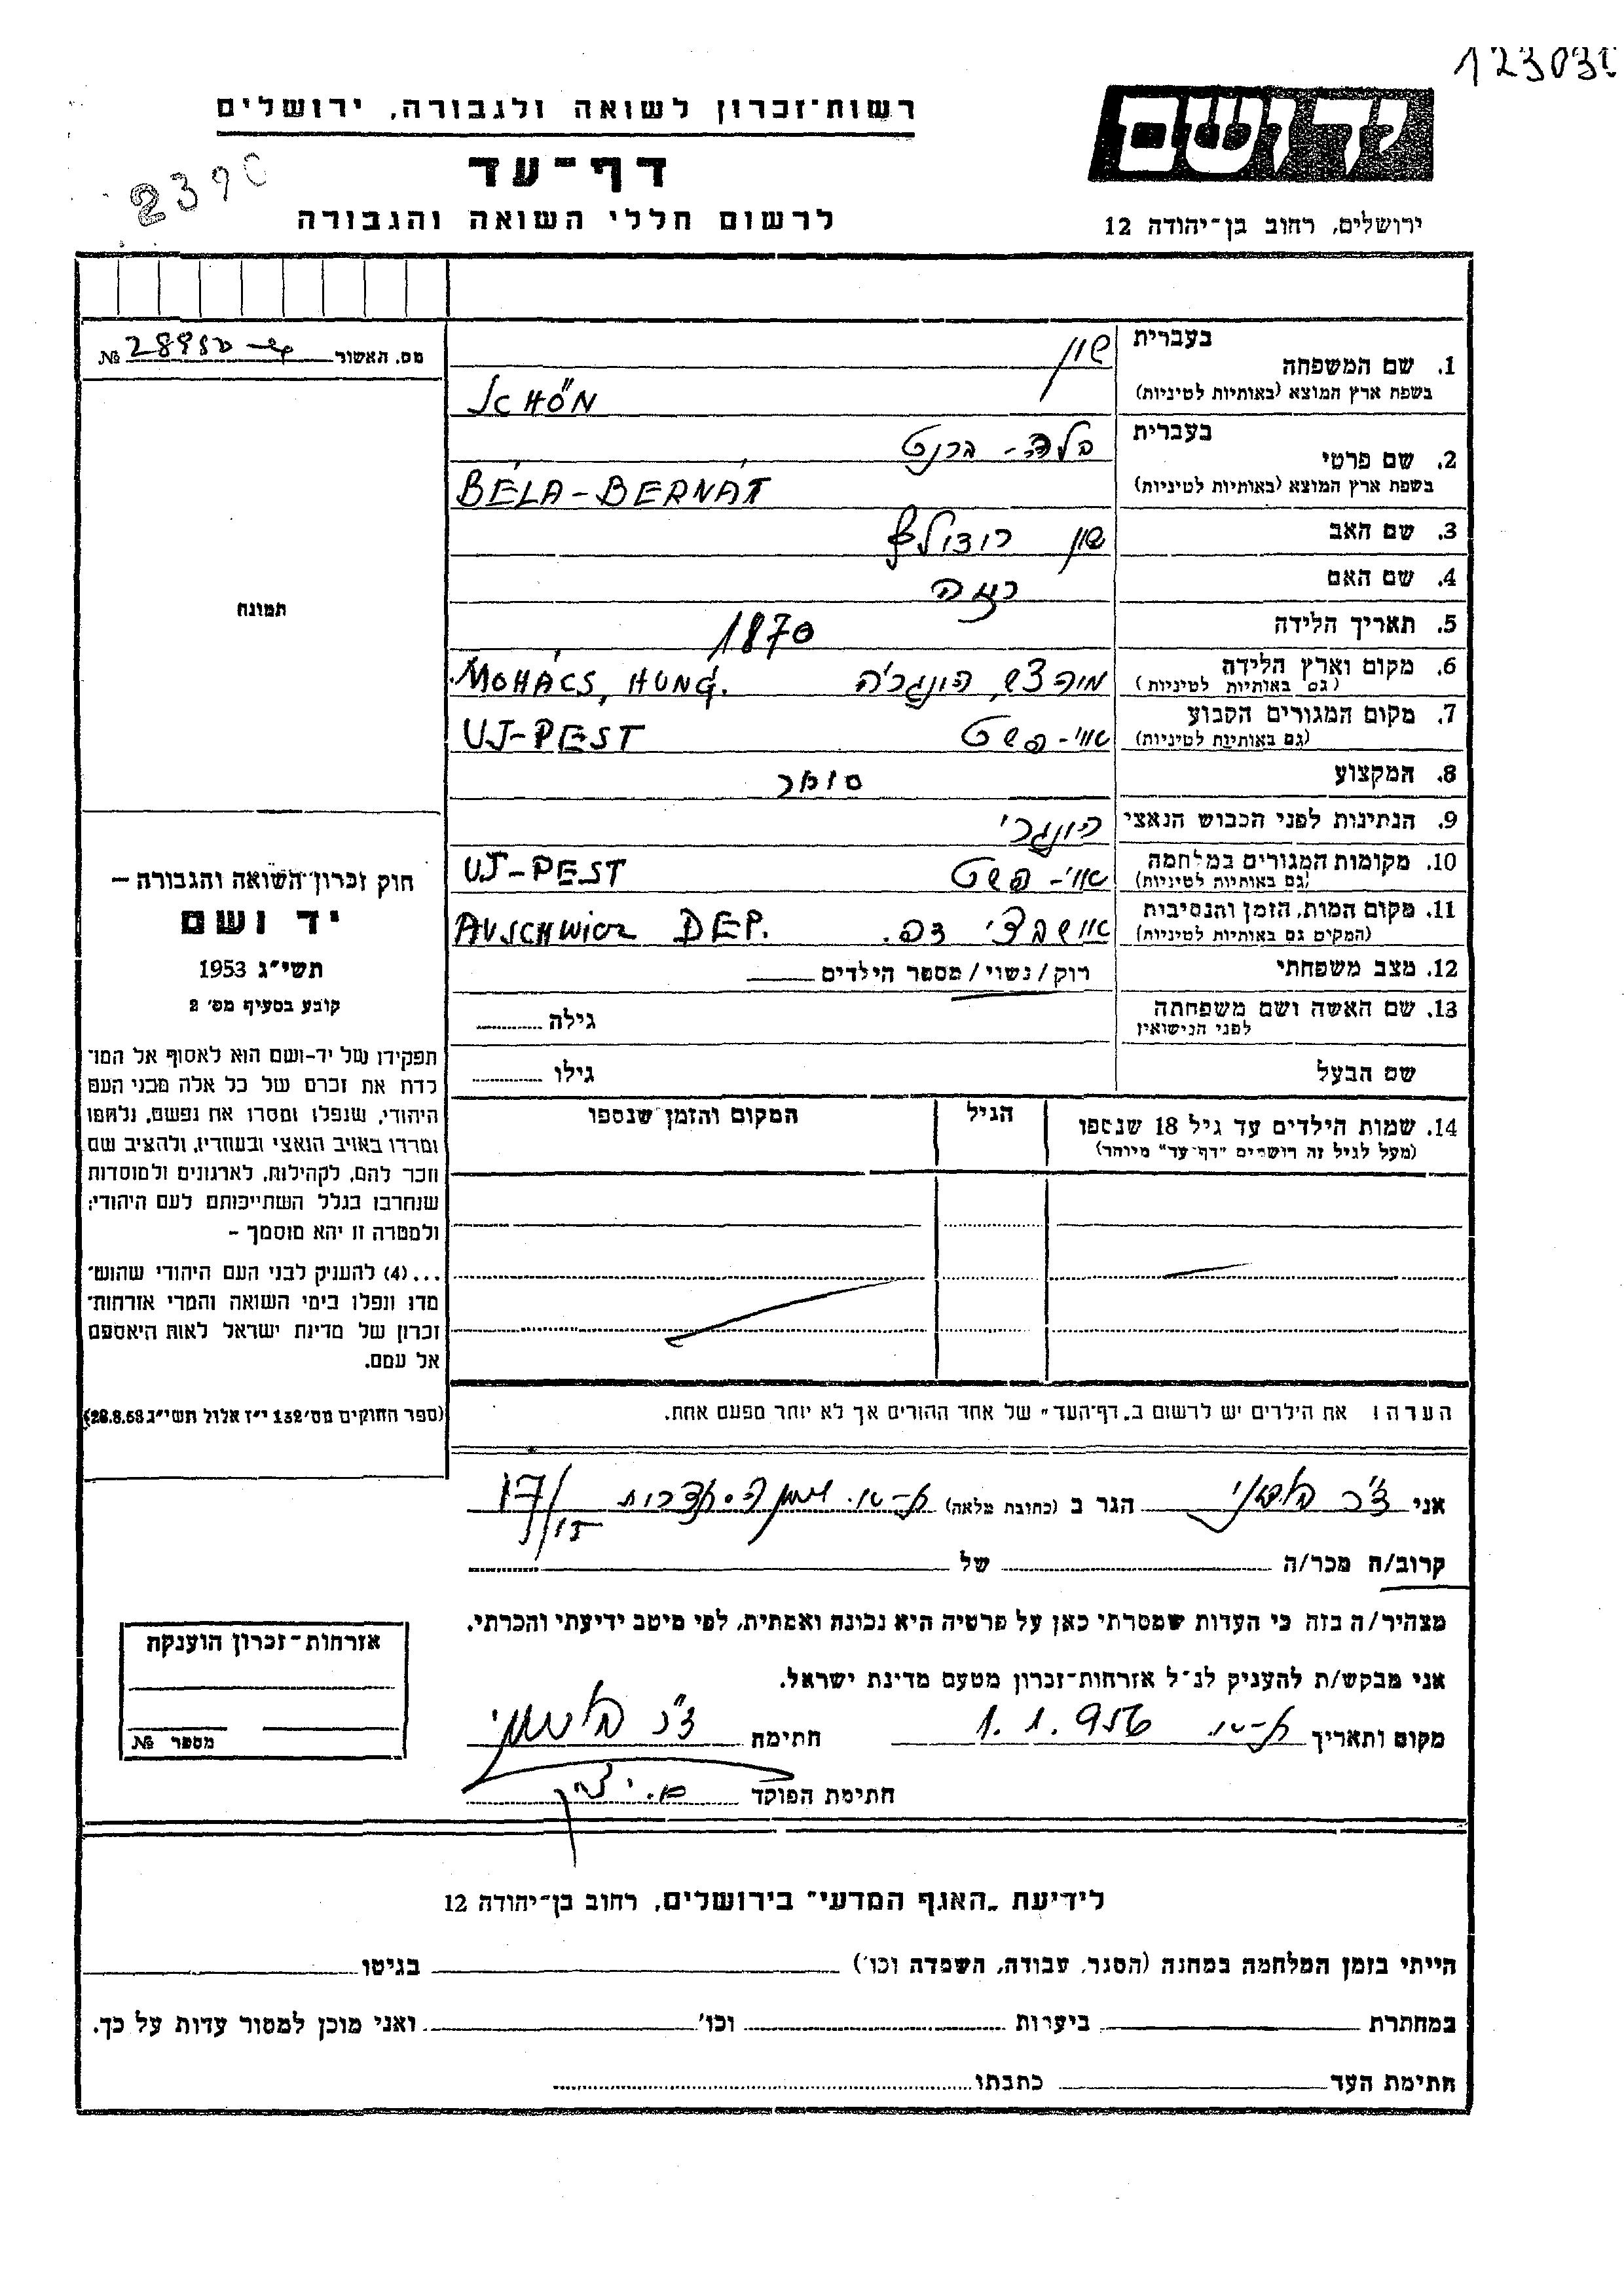 123031
יד ושם
ירושלים, רחוב בן־יהודה 12
רשות־זכרון לשואה ולגבורה, ירושלים
דף־עד
לרשום חללי השואה והגבורה
2390
מס. האשור № 28950
1. שם המשפחה
בעברית שון
בשפת ארץ המוצא (באותיות לטיניות) SCHÖN
2. שם פרטי
בעברית בלה - ברנט
בשפת ארץ המוצא (באותיות לטיניות) BÉLA-BERNÁT
3. שם האב שון רודולף
4. שם האם רוזה
5. תאריך הלידה 1870
6. מקום וארץ הלידה (גם באותיות לטיניות) מוהצש, הונגריה MOHÁCS, HUNG.
7. מקום המגורים הקבוע (גם באותיות לטיניות) אוי-פשט UJ-PEST
8. המקצוע סוחר
9. הנתינות לפני הכבוש הנאצי הונגרי
10. מקומות המגורים במלחמה (גם באותיות לטיניות) אוי-פשט UJ-PEST
11. מקום המות, הזמן והנסיבות (המקום גם באותיות לטיניות) אושבצי דפ. AUSCHWICZ DEP.
12. מצב משפחתי רוק/נשוי/מספר הילדים
13. שם האשה ושם משפחתה לפני הנישואין גילה
שם הבעל גילו
14. שמות הילדים עד גיל 18 שנספו הגיל המקום והזמן שנספו
(מעל לגיל זה רושמים "דף־עד" מיוחד)
תמונה
חוק זכרון־השואה והגבורה –
יד ושם
תשי״ג 1953
קובע בסעיף מס׳ 2
תפקידו של יד-ושם הוא לאסוף אל המו־
לדת את זכרם של כל אלה מבני העם
היהודי, שנפלו ומסרו את נפשם, נלחמו
ומרדו באויב הנאצי ובעוזריו, ולהציב שם
וזכר להם, לקהילות, לארגונים ולמוסדות
שנחרבו בגלל השתייכותם לעם היהודי;
ולמטרה זו יהא מוסמך –
...(4) להעניק לבני העם היהודי שהוש־
מדו ונפלו בימי השואה והמרי אזרחות־
זכרון של מדינת ישראל לאות היאספם
אל עמם.
(ספר החוקים מס׳ 132 י״ז אלול תשי״ג 28.8.53)
הערה: את הילדים יש לרשום ב„דף־העד" של אחד ההורים אך לא יותר מפעם אחת.
אני הגר ב (כתובת מלאה)
קרוב/ה מכר/ה של
מצהיר/ה בזה כי העדות שמסרתי כאן על פרטיה היא נכונה ואמתית, לפי מיטב ידיעתי והכרתי.
אני מבקש/ת להעניק לנ״ל אזרחות־זכרון מטעם מדינת ישראל.
מקום ותאריך 1.1.956 חתימה
חתימת הפוקד
אזרחות־זכרון הוענקה
מספר №
לידיעת „האגף המדעי" בירושלים, רחוב בן־יהודה 12
הייתי בזמן המלחמה במחנה (הסגר, עבודה, השמדה וכו׳) בגיטו
במחתרת ביערות וכו׳ ואני מוכן למסור עדות על כך.
חתימת העד כתבתו